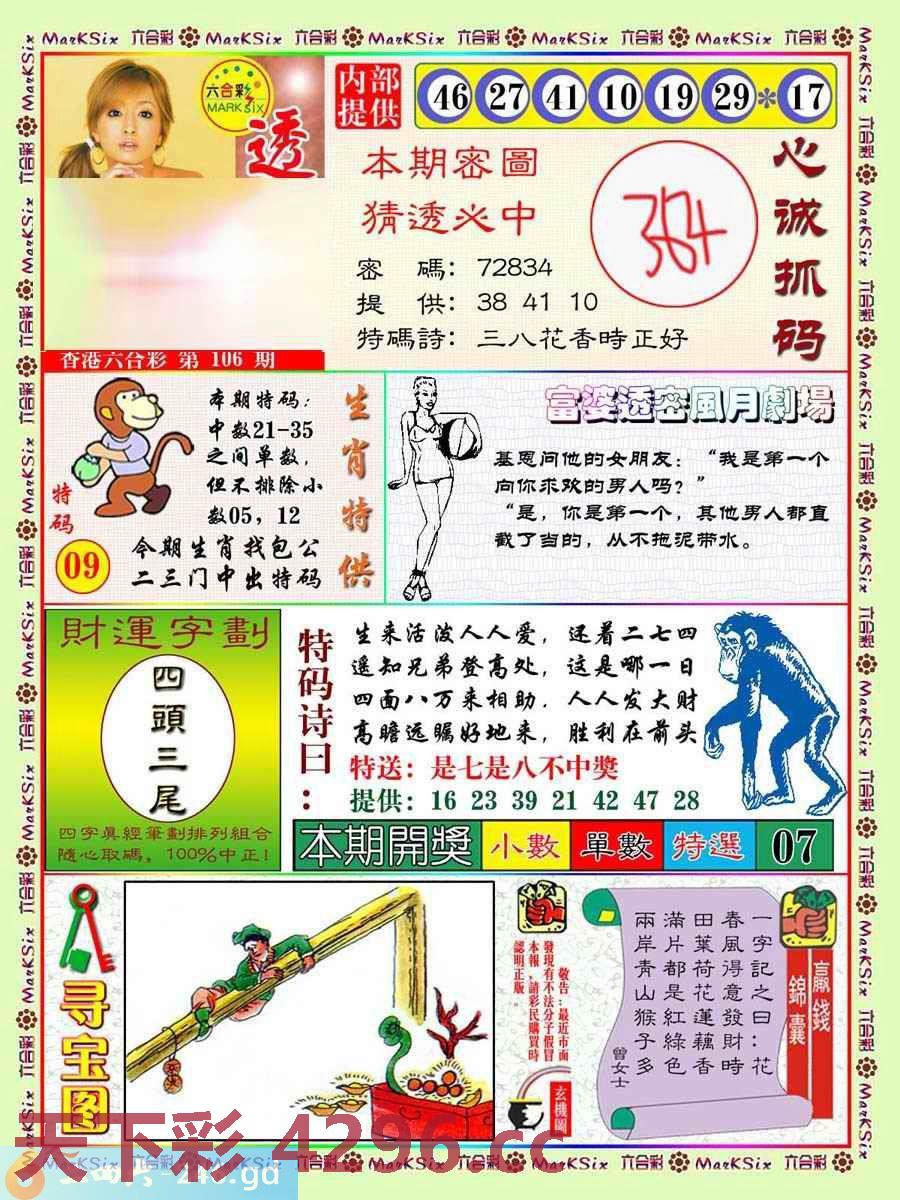 MarKSix 六合彩 MarKSix 六合彩 MarKSix 六合彩 MarKSix 六合彩 MarKSix 六合彩
六合彩
MARK six
透
内部
提供
46 27 41 10 19 29 * 17
本期密圖
猜透必中
密 碼: 72834
提 供: 38 41 10
特碼詩: 三八花香時正好
心诚抓码
香港六合彩 第 106 期
本期特码:
中数21-35
之间单数,
但不排除小
数05, 12
生肖特供
特码
09
今期生肖找包公
二三门中出特码
富婆透密風月劇場
基恩问他的女朋友: “我是第一个
向你求欢的男人吗? ”
“是, 你是第一个, 其他男人都直
截了当的, 从不拖泥带水。
財運字劃
四頭三尾
四字眞經筆劃排列組合
隨心取碼, 100%中正!
特码诗曰:
生来活泼人人爱, 还着二七四
遥知兄弟登高处, 这是哪一日
四面八万来相助. 人人发大财
高瞻远瞩好地来, 胜利在前头
特送: 是七是八不中獎
提供: 16 23 39 21 42 47 28
本期開獎 小數 單數 特選 07
寻宝图
敬告:最近市面
發現有不法分子假冒
本報,請彩民購買時
認明正版。
玄機圖
一字記之曰: 花
春風得意發財時
田葉荷花蓮藕香
滿片都是紅綠色
兩岸青山猴子多
曾女士
贏錢
錦囊
天下彩 4296.cc
MarKSix 六合彩 MarKSix 六合彩 MarKSix 六合彩 MarKSix 六合彩